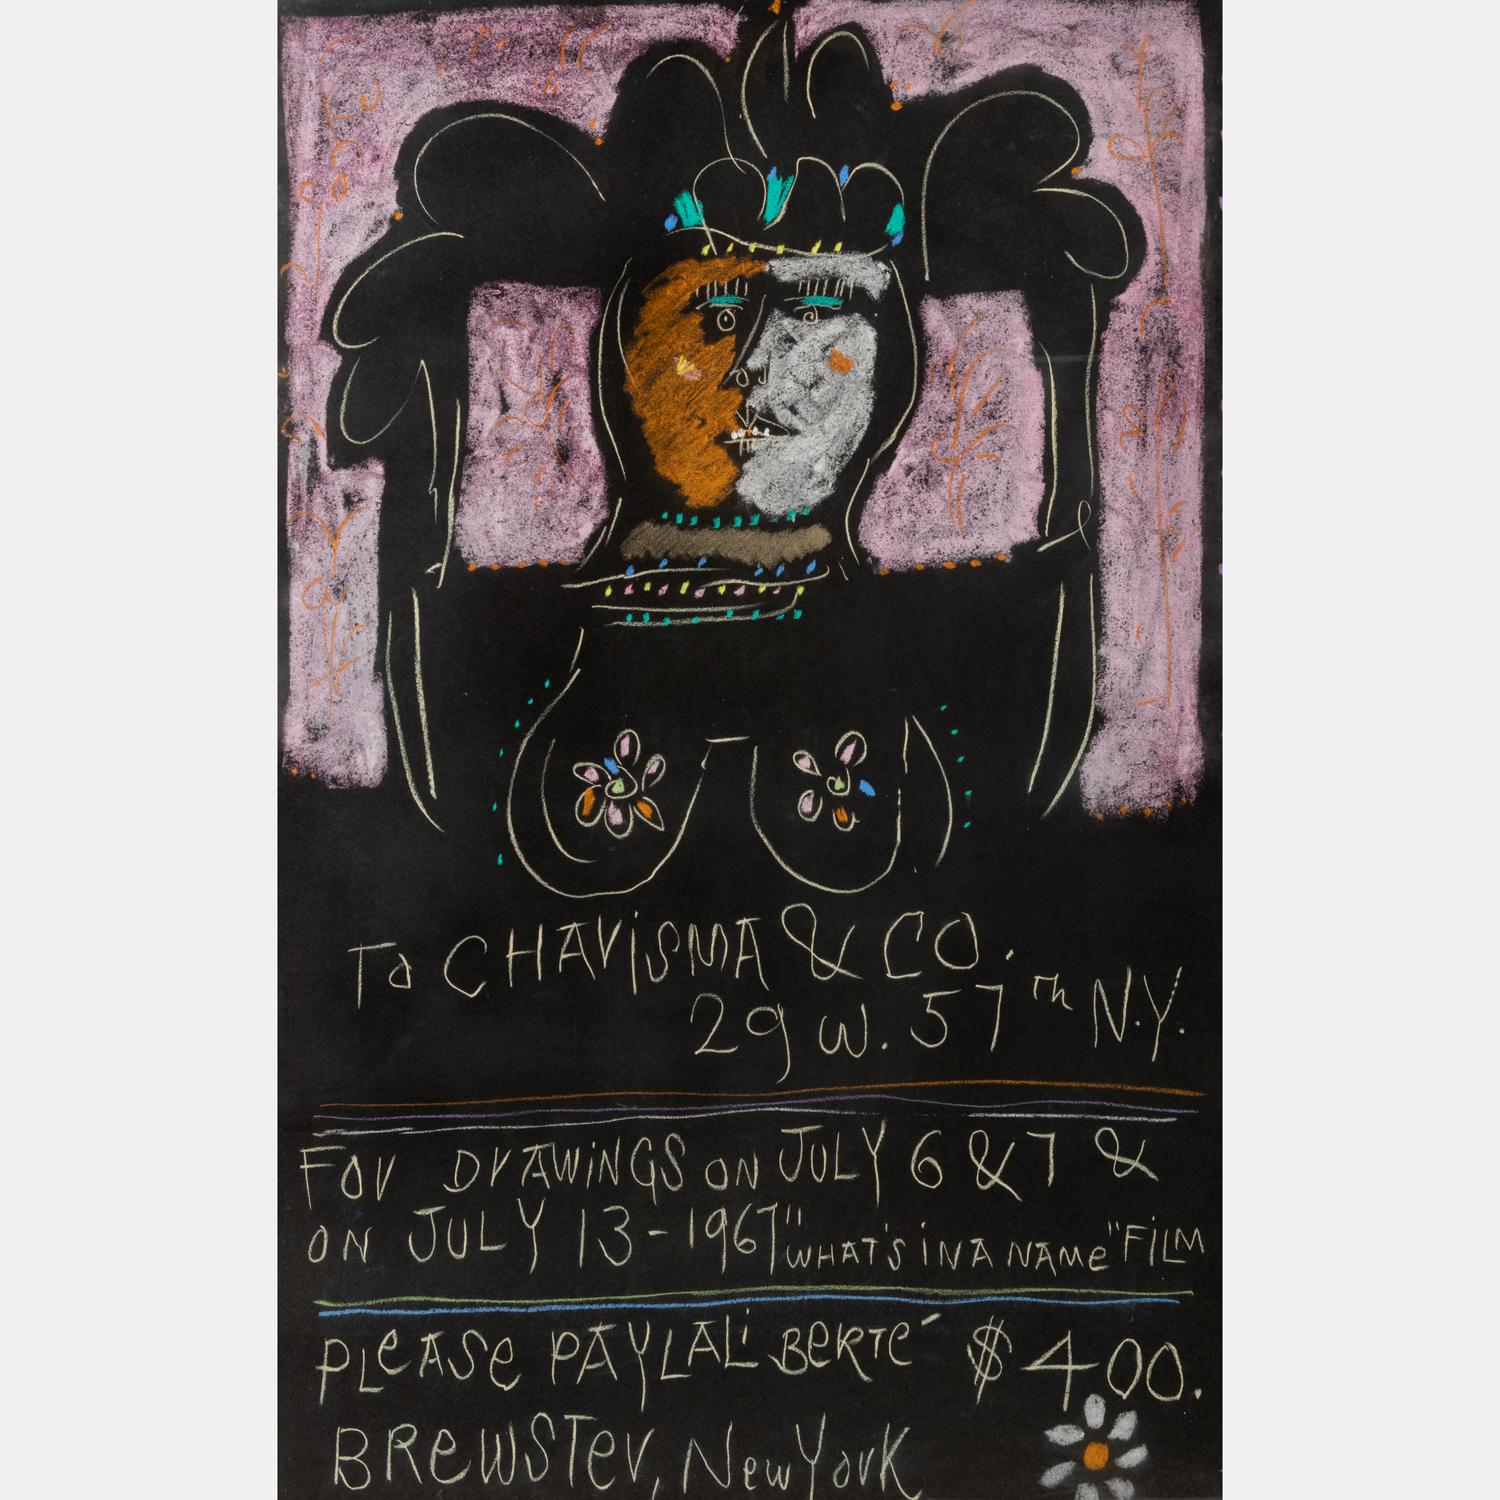 To CHARISMA & CO.
29 W. 57 TH N.Y.
FOR DRAWINGS ON JULY 6 & 7 &
ON JULY 13 - 1967 "WHAT'S IN A NAME" FILM
PLEASE PAY LALiBERTÉ $400.
BREWSTER, New York